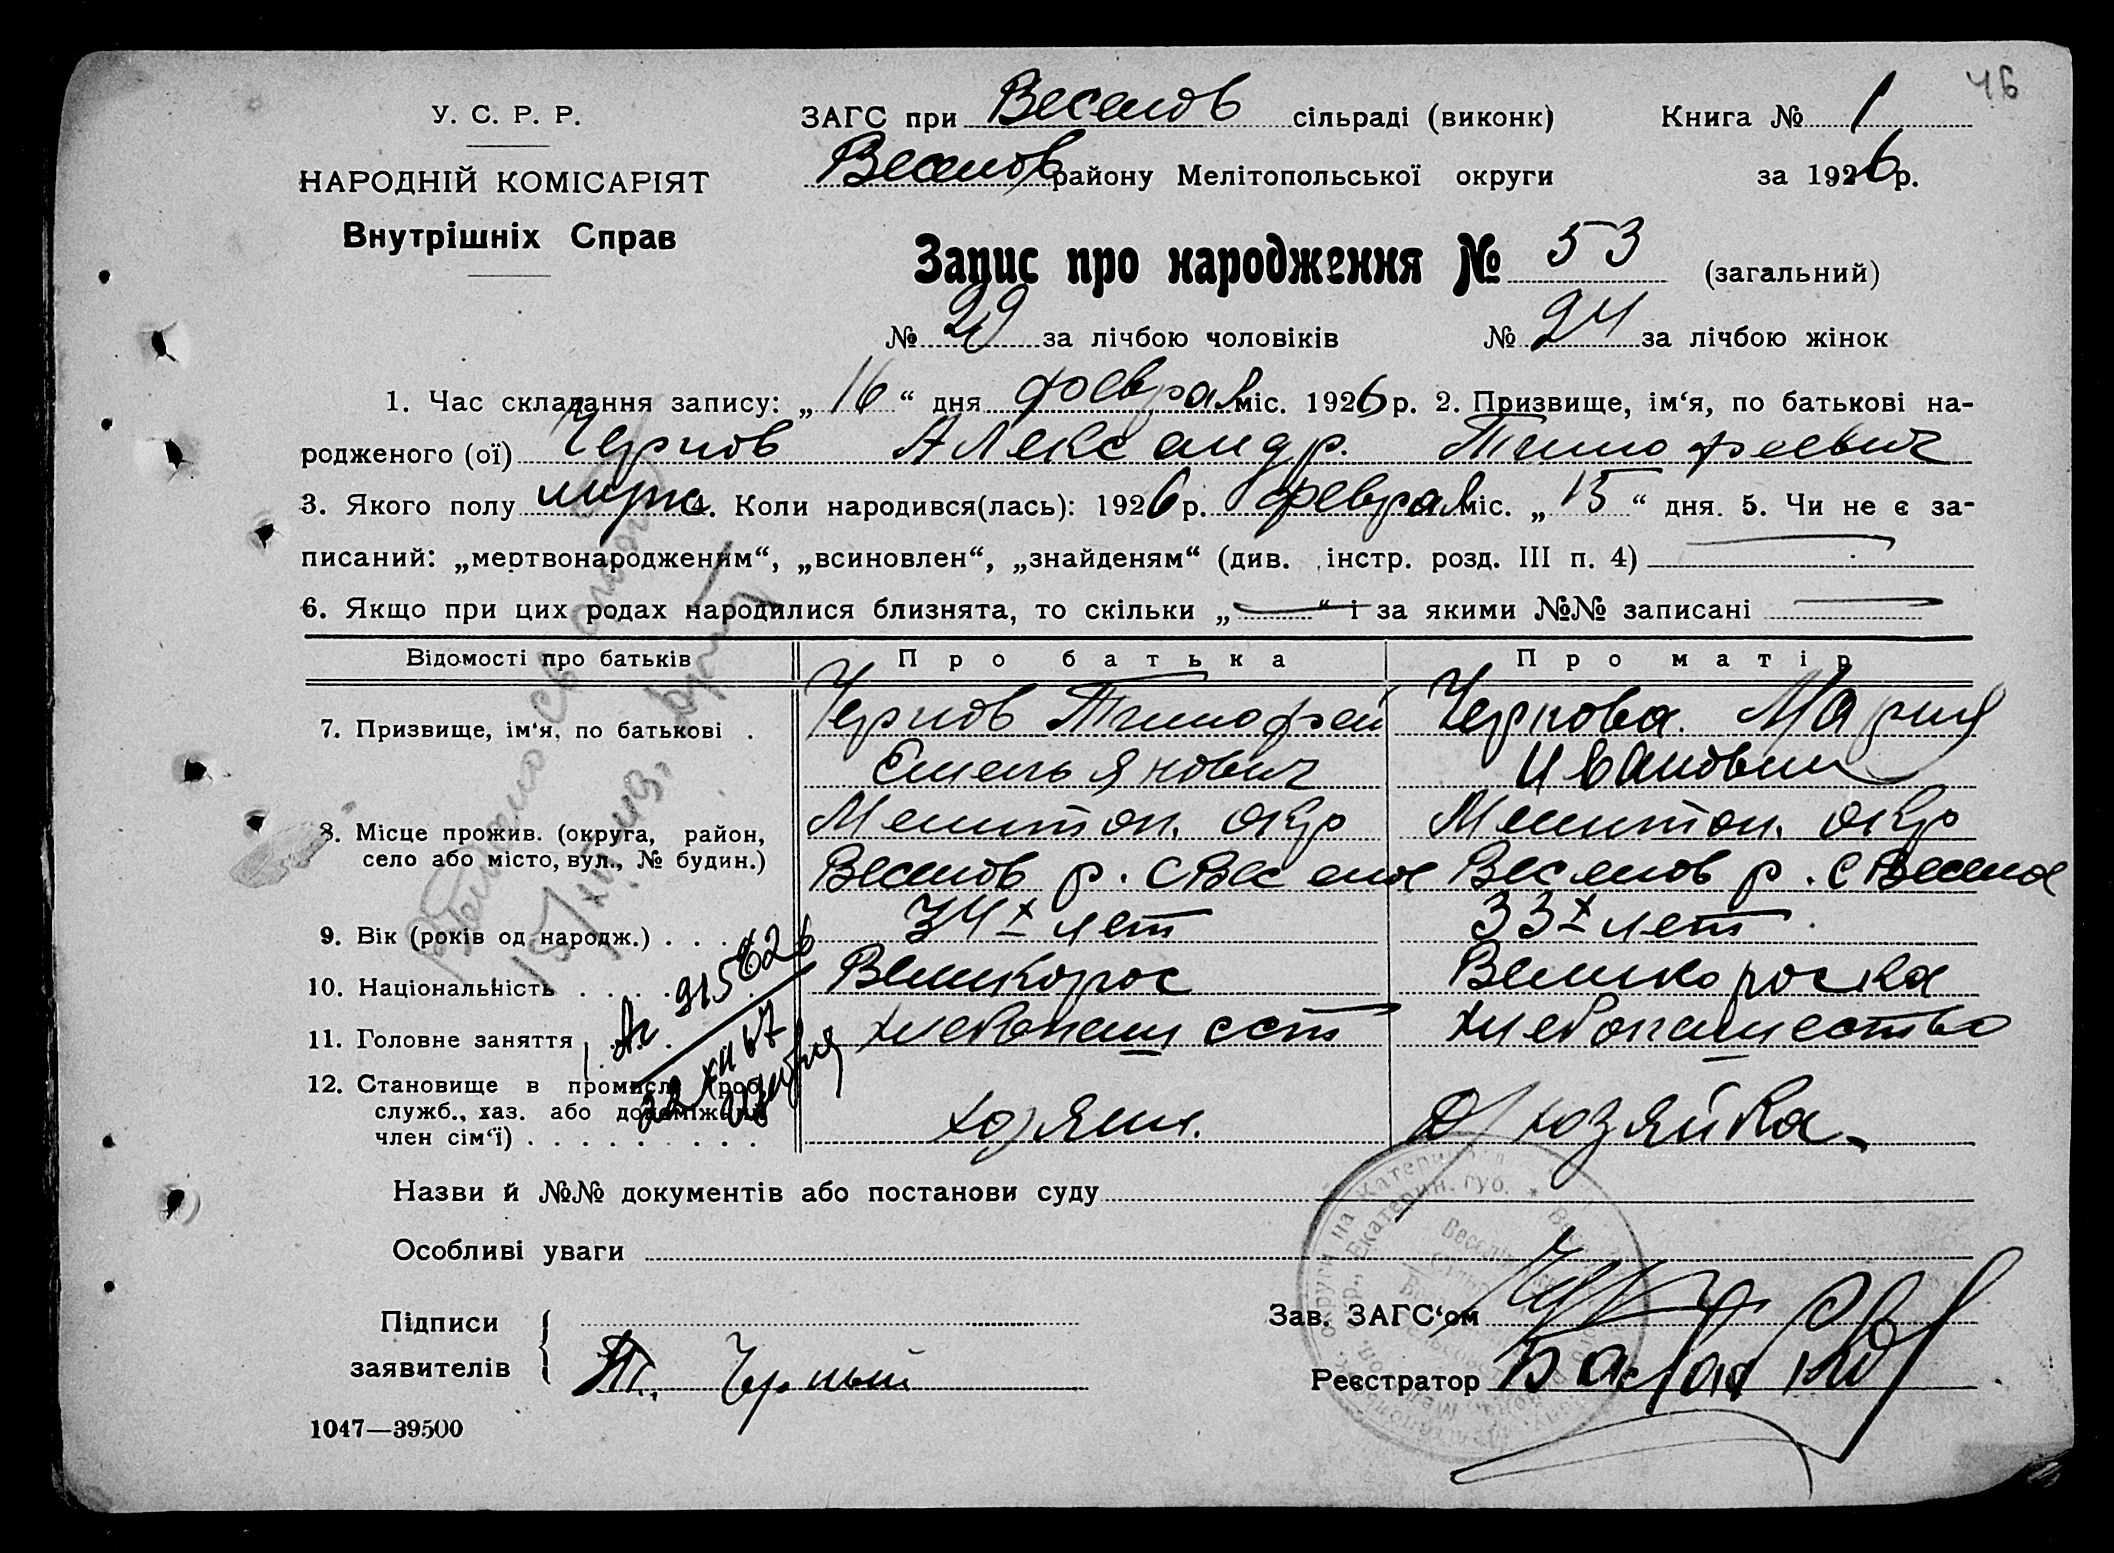 46
У. С. Р. Р.
НАРОДНІЙ КОМІСАРІЯТ
Внутрішніх Справ
ЗАГС при Веселов сільраді (виконк) Книга № 1
Веселов району Мелітопольської округи за 1926 р.
Запис про народження № 53 (загальний)
№ 29 за лічбою чоловіків № 24 за лічбою жінок
1. Час складання запису: „ 16 “ дня феврал міс. 1926 р. 2. Призвище, ім‘я, по батькові на-
родженого (ої) Чернов Александр. Тимофеевич
3. Якого полу муж 4. Коли народився(лась): 1926 р. феврал міс. „ 15 “ дня. 5. Чи не є за-
писаний: „мертвонародженим“, „всиновлен“, „знайденям“ (див. інстр. розд. III п. 4)
6. Якщо при цих родах народилися близнята, то скільки „ “ і за якими №№ записані
Відомості про батьків Про батька Про матір
7. Призвище, ім‘я, по батькові . Чернов Тимофей Чернова. Мария
Емельянович Ивановна
8. Місце прожив. (округа, район, Мелитоп. окр Мелитоп. окр
село або місто, вул., № будин.) Веселов р. с Веселое Веселов р. с Веселое
9. Вік (років од народж.) . . . . 34х лет 33х лет
10. Національність . . . . Великорос Великороска
11. Головне заняття . . . хлебопашест хлебопашество
12. Становище в промислі (роб.,
служб., хаз. або допоміжний
член сім‘ї) . . . . . . . . . хозяин. Д/хозяйка
Назви й №№ документів або постанови суду
Особливі уваги
Підписи
заявителів Т. Черный
Зав. ЗАГС‘ом
Реєстратор
1047—39500